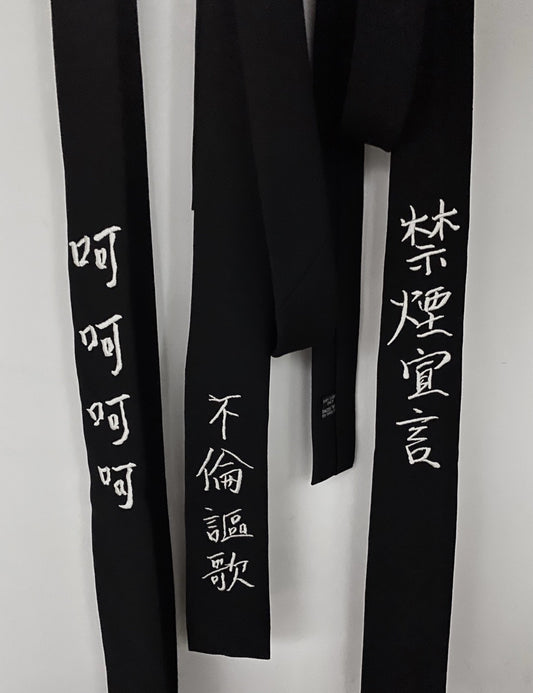 呵呵呵呵
不倫謳歌
禁煙宣言